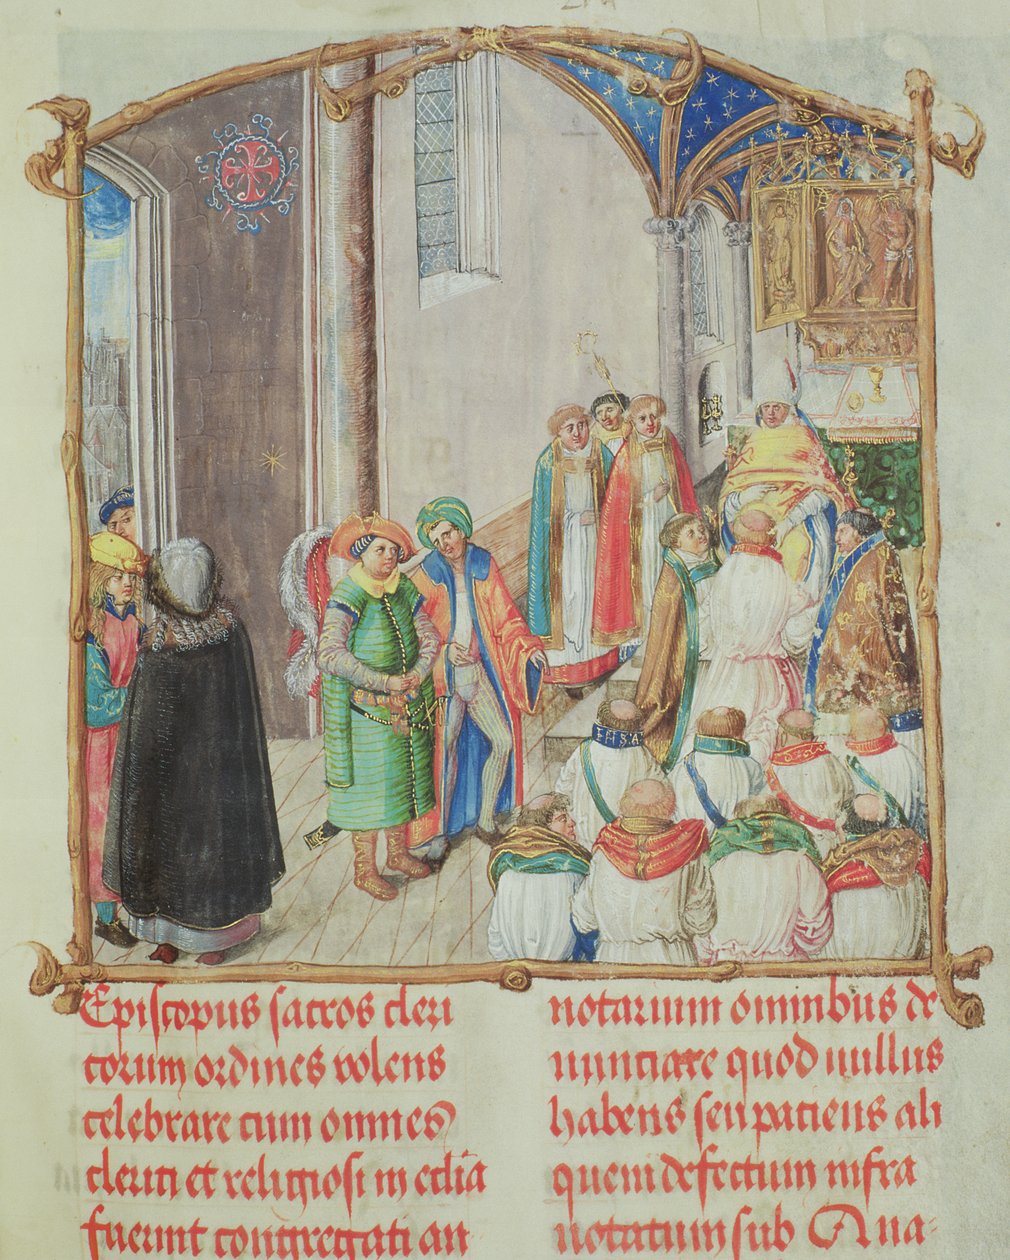 Episcopus sacros cleri
corum ordines volens
celebrare cum omnes
clerici et religiosi in ecl̃ia
fuerint congregati an
notarium omnibus de
nunciare quod nullus
habens seu patiens ali
quem defectum infra
notatum sub Qua-